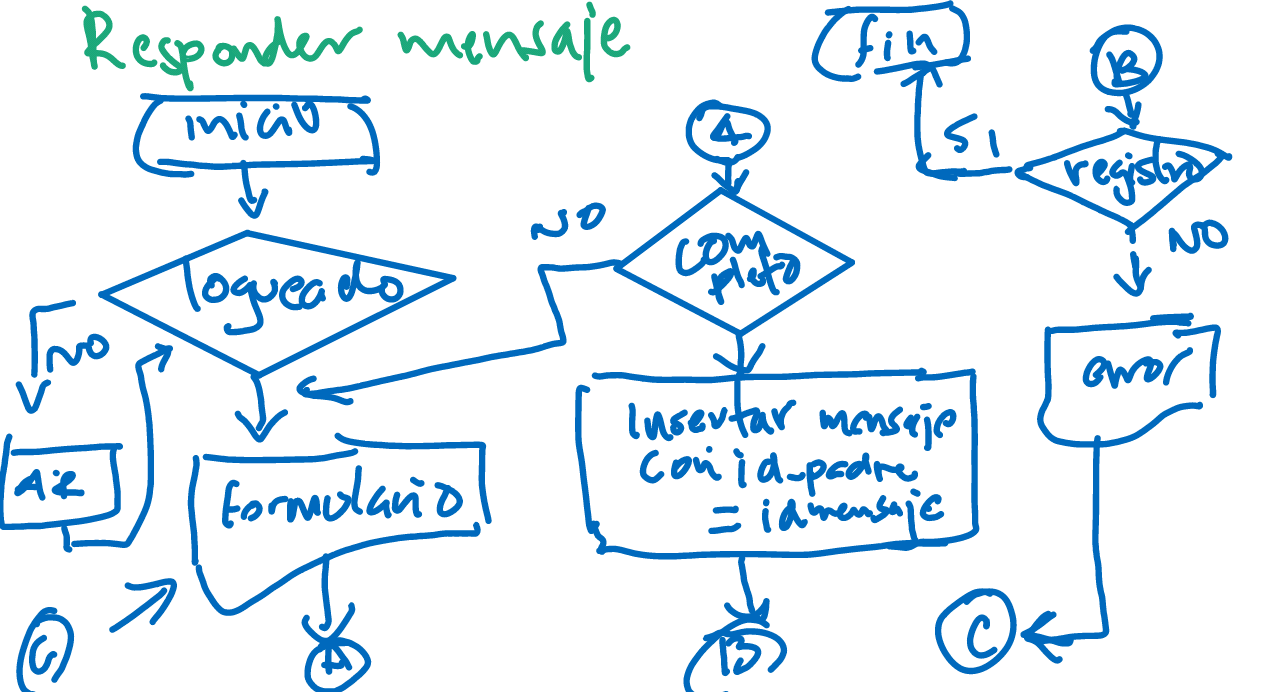 Responder mensaje
inicio
logueado
NO
Formulario
A
C
A
com
pleto
NO
Insertar mensaje
Con id_padre
= idmensaje
B
B
registro
SI
fin
NO
error
C